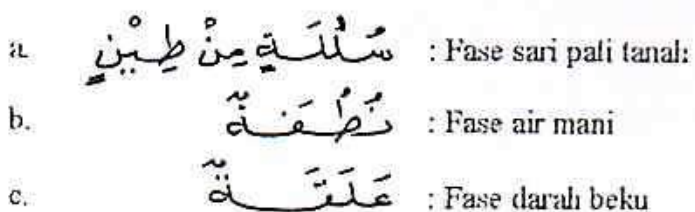 a. سُلٰلَةٍ مِنْ طِيْنٍ : Fase sari pati tanah
b. نُطْفَةً : Fase air mani
c. عَلَقَةً : Fase darah beku